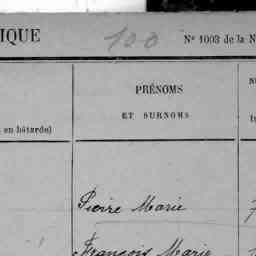 IQUE 100 N° 1003 de la N
PRÉNOMS
ET SURNOMS
en bâtarde)
Pierre Marie
François Marie